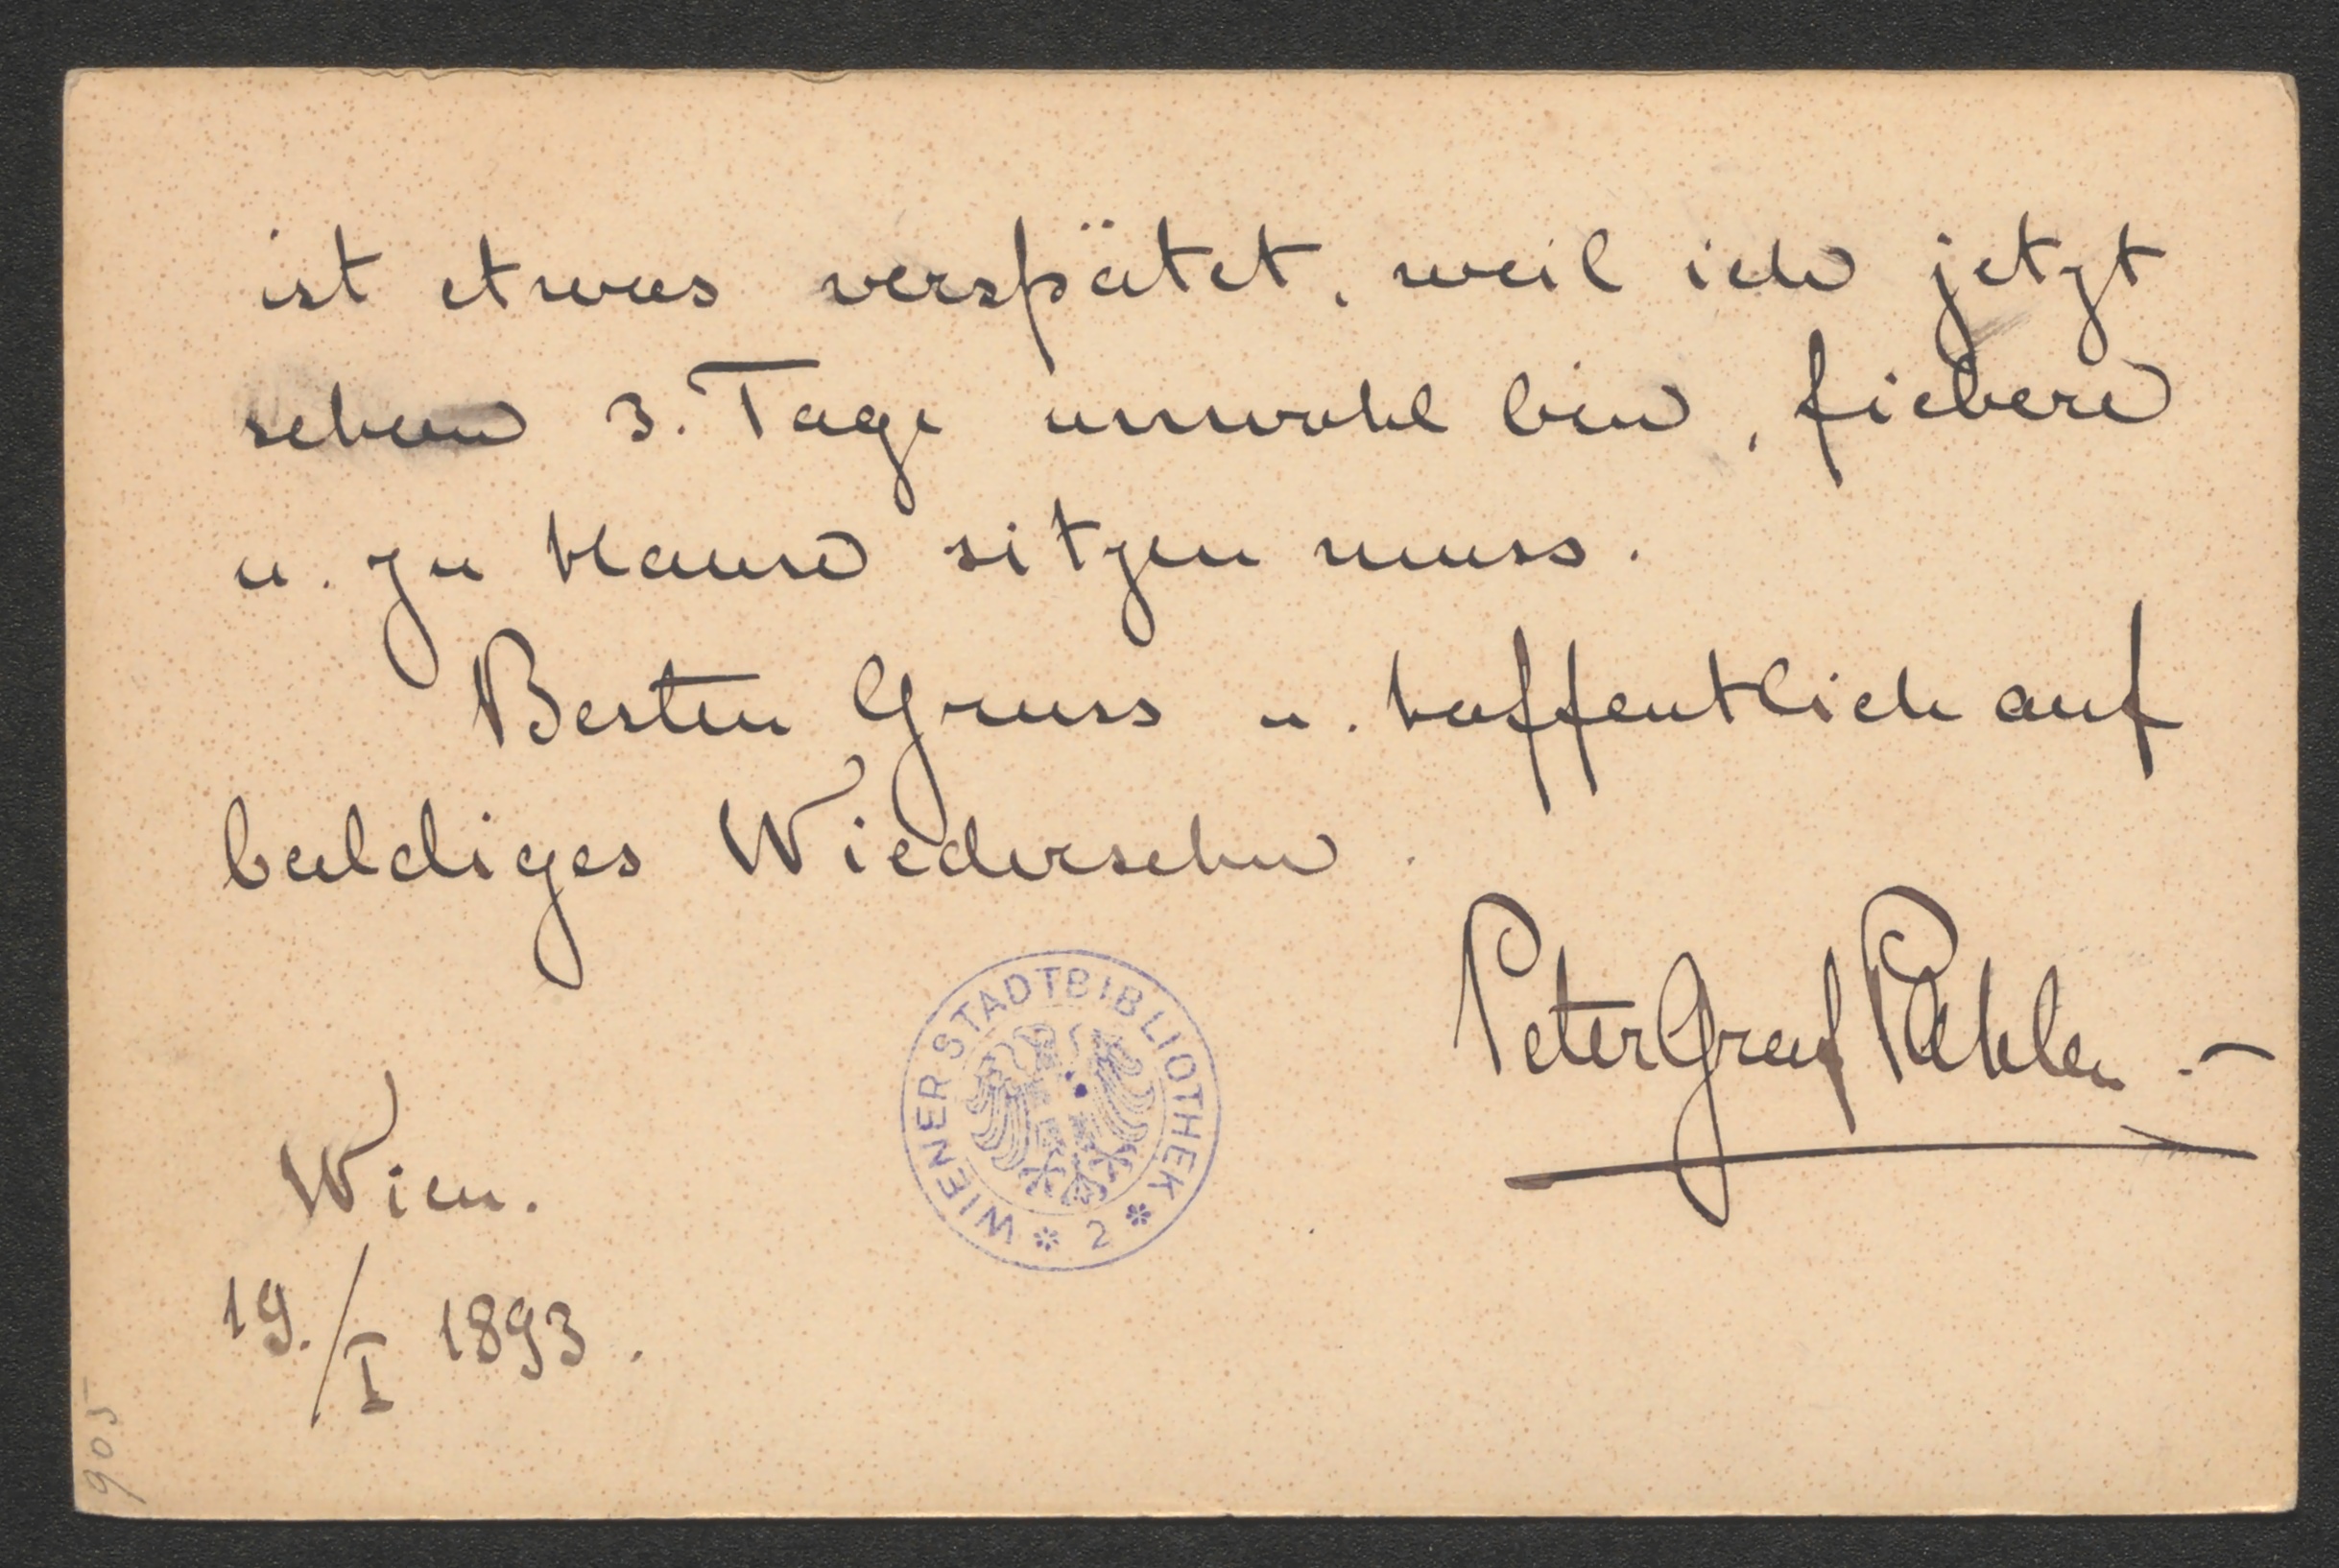 ist etwas verspätet, weil ich jetzt
schon 3. Tage unwohl bin, fiebere
u. zu Hause sitzen muss.
Besten Gruss u. hoffentlich auf
baldiges Wiedersehn.
Peter Graf Pahlen.-
WIENER STADTBIBLIOTHEK * 2 *
Wien.
19./I 1893.
905